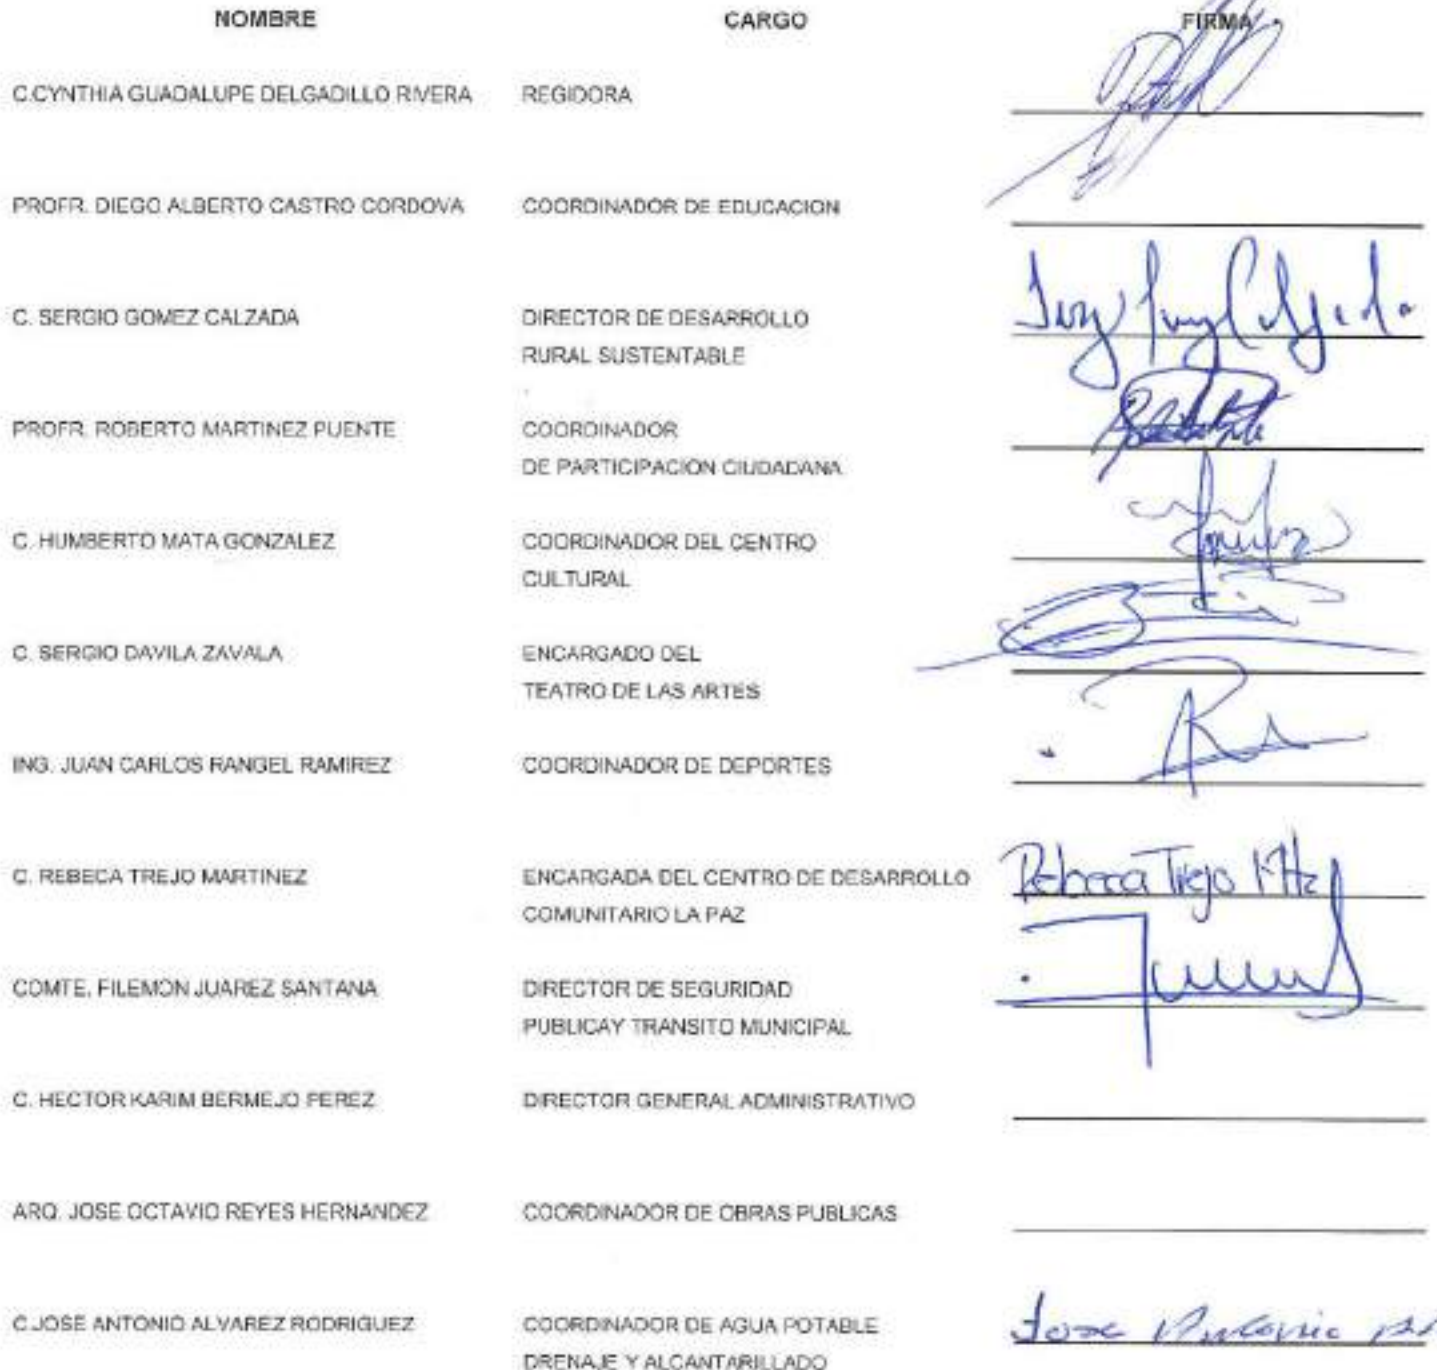 NOMBRE CARGO FIRMA
C.CYNTHIA GUADALUPE DELGADILLO RIVERA REGIDORA
PROFR. DIEGO ALBERTO CASTRO CORDOVA COORDINADOR DE EDUCACION
C. SERGIO GOMEZ CALZADA DIRECTOR DE DESARROLLO
RURAL SUSTENTABLE
PROFR. ROBERTO MARTINEZ PUENTE COORDINADOR
DE PARTICIPACION CIUDADANA
C. HUMBERTO MATA GONZALEZ COORDINADOR DEL CENTRO
CULTURAL
C. SERGIO DAVILA ZAVALA ENCARGADO DEL
TEATRO DE LAS ARTES
ING. JUAN CARLOS RANGEL RAMIREZ COORDINADOR DE DEPORTES
C. REBECA TREJO MARTINEZ ENCARGADA DEL CENTRO DE DESARROLLO Rebeca Trejo Mtz
COMUNITARIO LA PAZ
COMTE. FILEMON JUAREZ SANTANA DIRECTOR DE SEGURIDAD
PUBLICAY TRANSITO MUNICIPAL
C. HECTOR KARIM BERMEJO PEREZ DIRECTOR GENERAL ADMINISTRATIVO
ARQ. JOSE OCTAVIO REYES HERNANDEZ COORDINADOR DE OBRAS PUBLICAS
C.JOSE ANTONIO ALVAREZ RODRIGUEZ COORDINADOR DE AGUA POTABLE Jose Antonio
DRENAJE Y ALCANTARILLADO